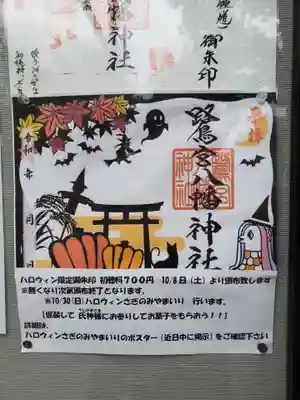 御朱印
神社
鷺宮八幡神社
奉拝
令和 年 月 日
ハロウィン限定御朱印 初穂料700円 10/8日(土)より頒布致します
※無くなり次第頒布終了となります。
※10/30(日)ハロウィンさぎのみやまいり 行います。
【仮装して 氏神様にお参りしてお菓子をもらおう!!】
詳細は、
ハロウィンさぎのみやまいりのポスター(近日中に掲示)をご確認下さい